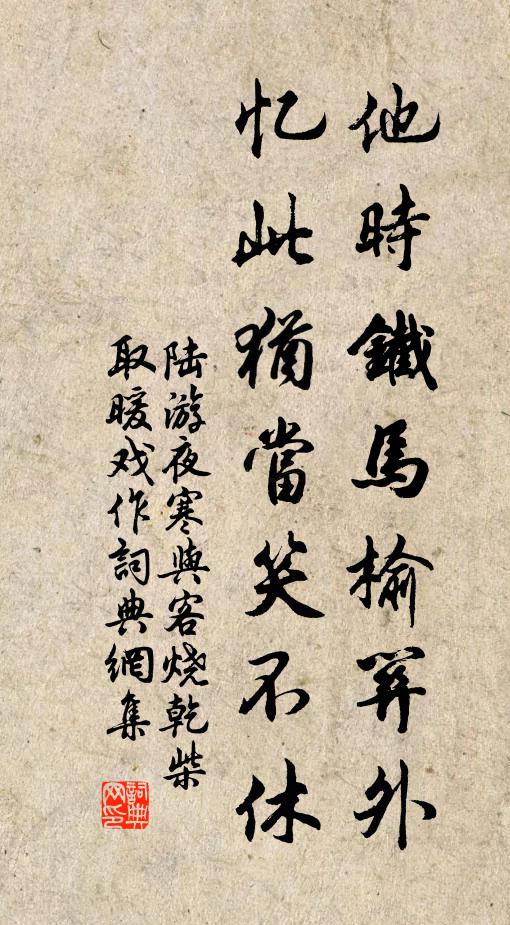 他時鐵馬榆関外
忆此猶當笑不休
陆游夜寒與客烧乾柴
取暖戏作詞典網集
詞典
网印